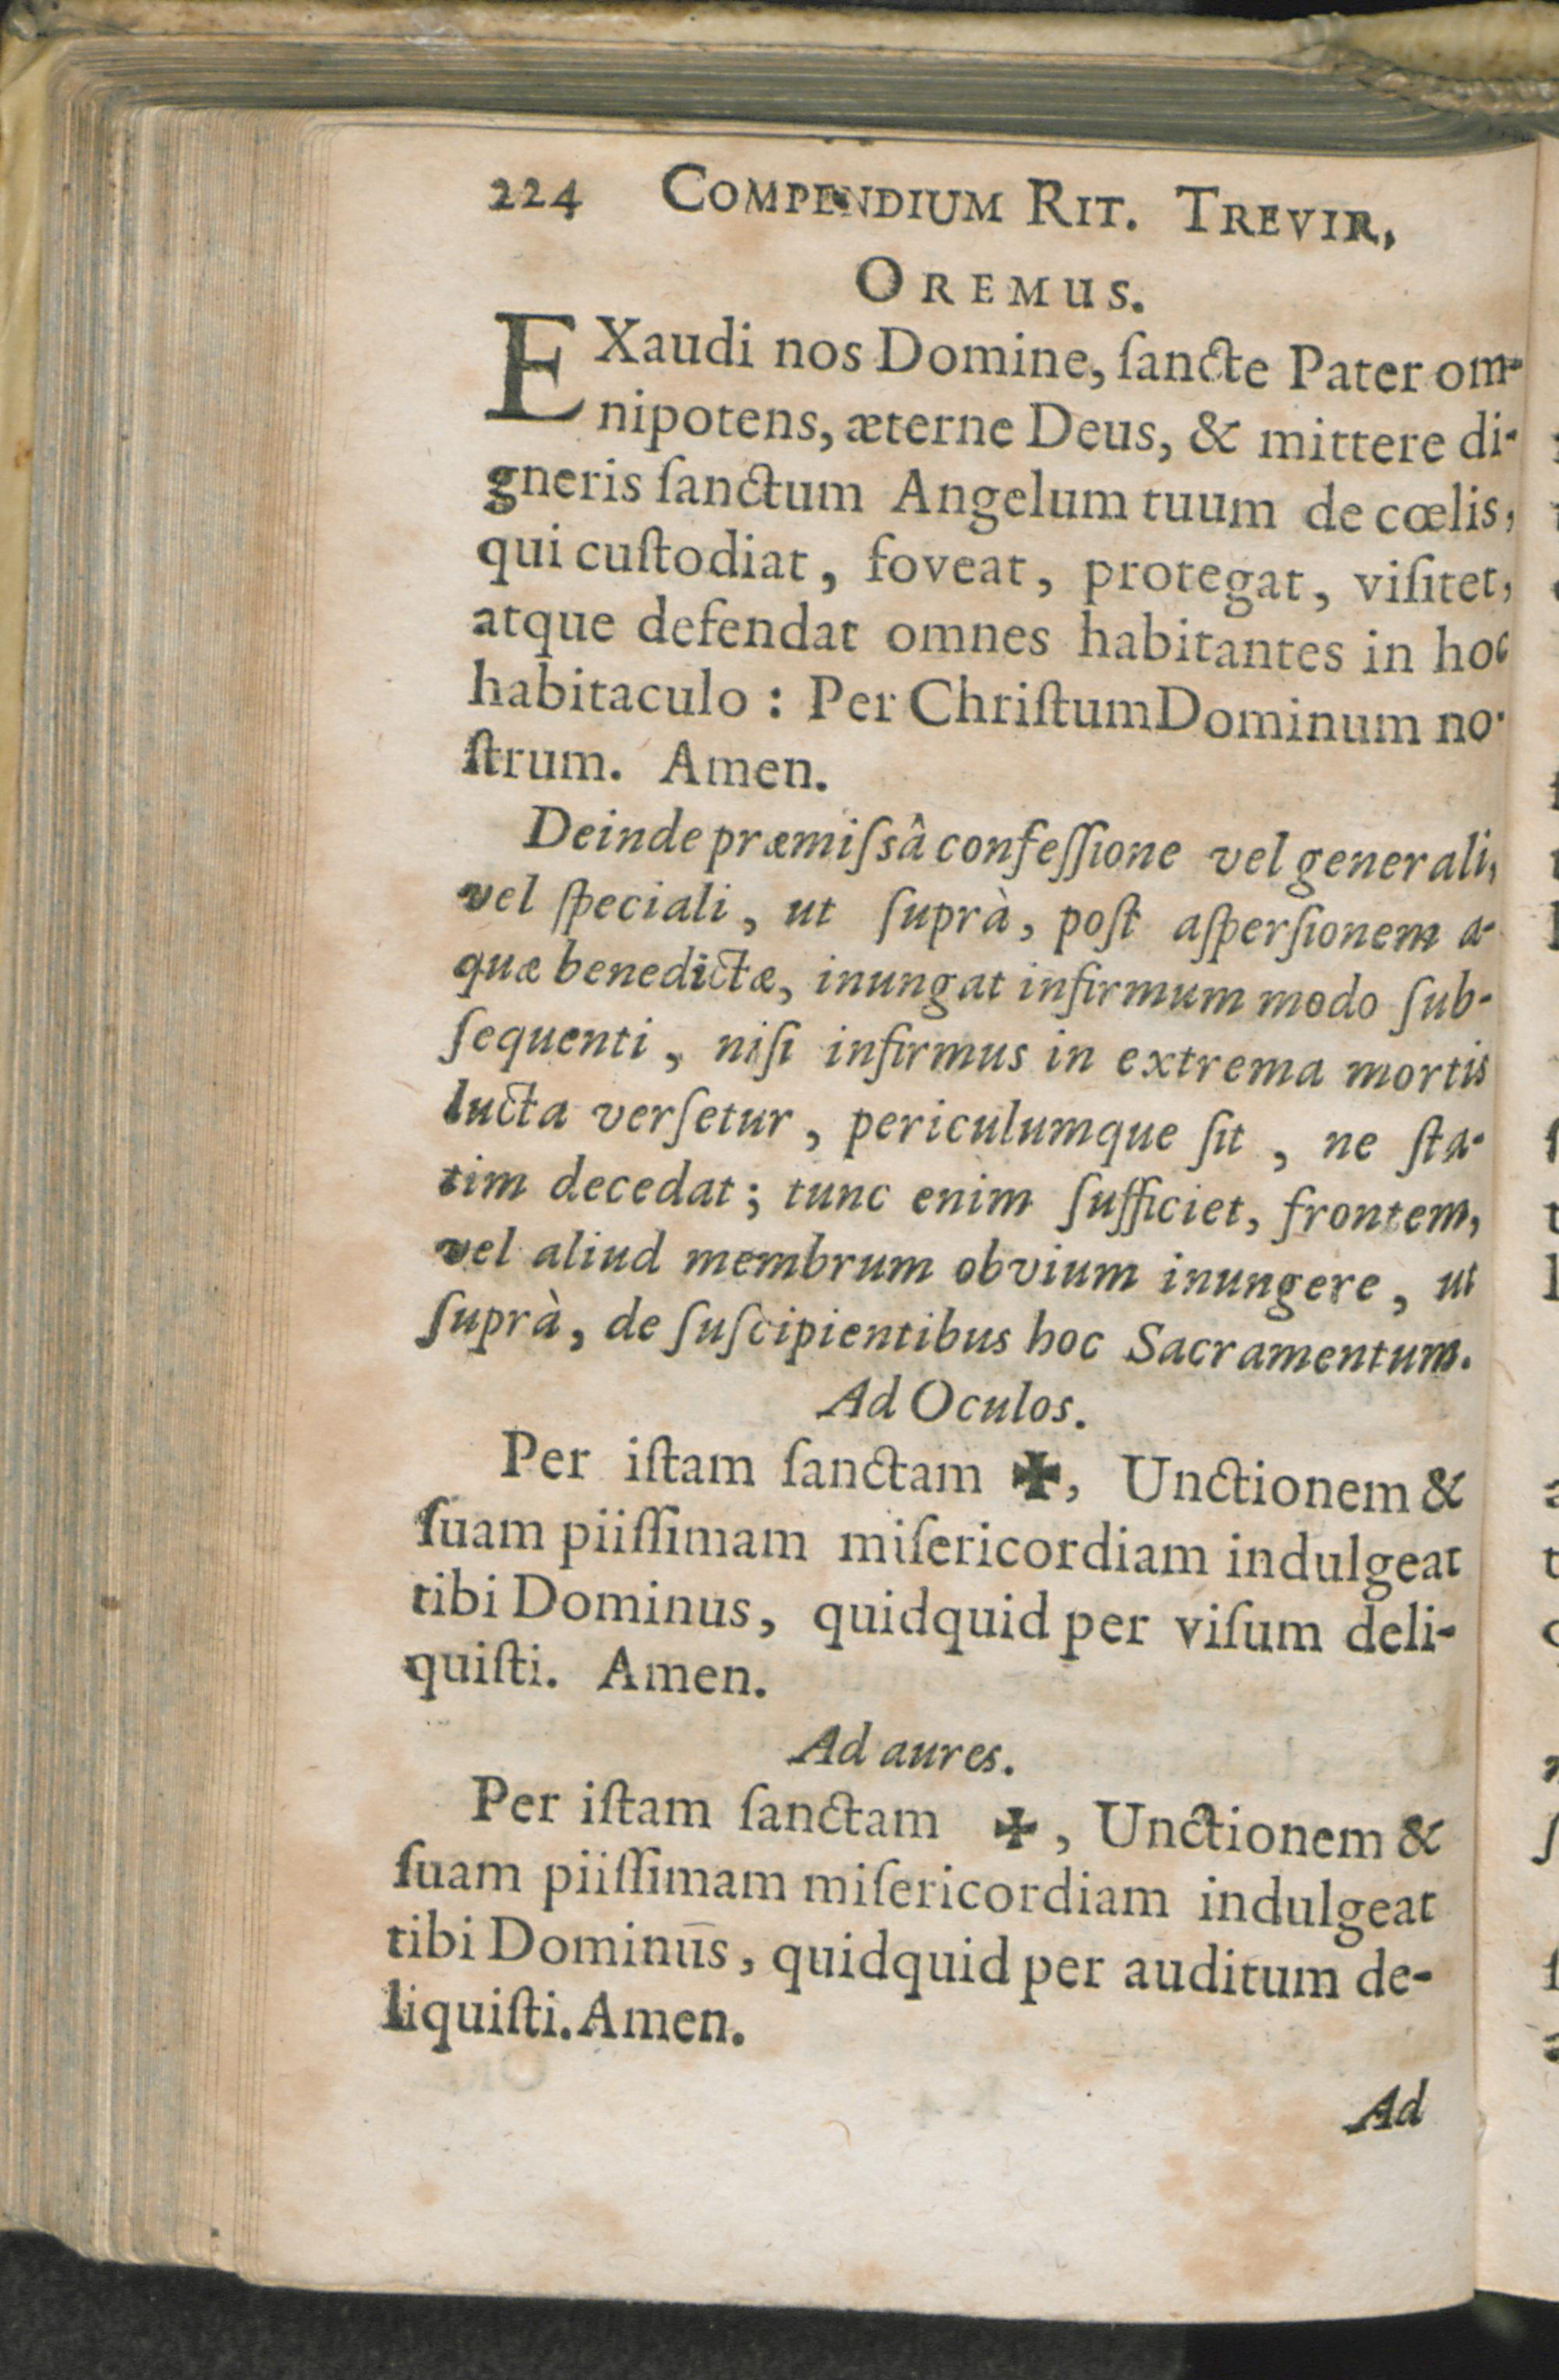 224 COMPENDIUM RIT. TREVIR,
OREMUS.
EXaudi nos Domine, ſancte Pater om-
nipotens, æterne Deus, & mittere di-
gneris ſanctum Angelum tuum de cœlis,
qui cuſtodiat, foveat, protegat, viſitet,
atque defendat omnes habitantes in hoc
habitaculo : Per Chriſtum Dominum no-
ſtrum. Amen.
Deinde præmiſsâ confeſſione vel generali,
vel ſpeciali, ut ſuprà, poſt aſperſionem a-
quæ benedictæ, inungat infirmum modo ſub-
ſequenti, niſi infirmus in extrema mortis
lucta verſetur, periculumque ſit, ne ſta-
tim decedat; tunc enim ſufficiet, frontem,
vel aliud membrum obvium inungere, ut
ſuprà, de ſuſcipientibus hoc Sacramentum.
Ad Oculos.
Per iſtam ſanctam ✠, Unctionem &
ſuam piiſſimam miſericordiam indulgeat
tibi Dominus, quidquid per viſum deli-
quiſti. Amen.
Ad aures.
Per iſtam ſanctam ✠, Unctionem &
ſuam piiſſimam miſericordiam indulgeat
tibi Dominus, quidquid per auditum de-
liquiſti. Amen.
Ad